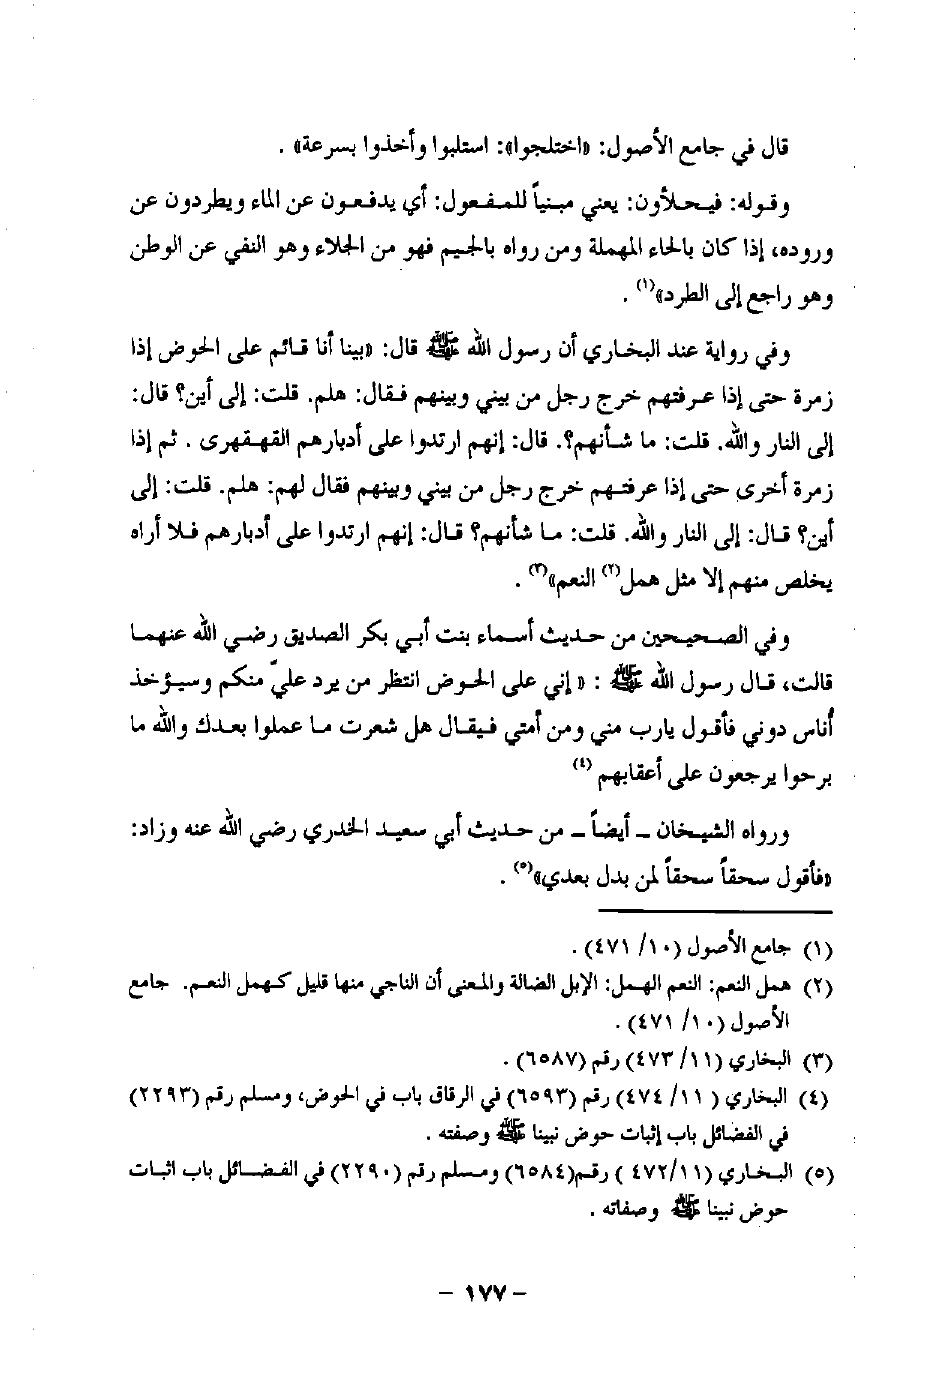 قال في جامع الأصول: «اختلجوا»: استلبوا وأخذوا بسرعة» .
وقوله: فيحلأون: يعني مبنياً للمفعول: أي يدفعون عن الماء ويطردون عن
وروده، إذا كان بالحاء المهملة ومن رواه بالجيم فهو من الجلاء وهو النفي عن الوطن
وهو راجع إلى الطرد»(١) .
وفي رواية عند البخاري أن رسول الله ﷺ قال: «بينا أنا قائم على الحوض إذا
زمرة حتى إذا عرفتهم خرج رجل من بيني وبينهم فقال: هلم. قلت: إلى أين؟ قال:
إلى النار والله. قلت: ما شأنهم؟. قال: إنهم ارتدوا على أدبارهم القهقهرى . ثم إذا
زمرة أخرى حتى إذا عرفتهم خرج رجل من بيني وبينهم فقال لهم: هلم. قلت: إلى
أين؟ قال: إلى النار والله. قلت: ما شأنهم؟ قال: إنهم ارتدوا على أدبارهم فلا أراه
يخلص منهم إلا مثل همل(٢) النعم»(٣) .
وفي الصحيحين من حديث أسماء بنت أبي بكر الصديق رضي الله عنهما
قالت، قال رسول الله ﷺ : «إني على الحوض انتظر من يرد عليّ منكم وسيؤخذ
أناس دوني فأقول يارب مني ومن أمتي فيقال هل شعرت ما عملوا بعدك والله ما
برحوا يرجعون على أعقابهم (٤)
ورواه الشيخان - أيضاً - من حديث أبي سعيد الخدري رضي الله عنه وزاد:
«فأقول سحقاً سحقاً لمن بدل بعدي»(٥) .
(١) جامع الأصول (١٠/ ٤٧١) .
(٢) همل النعم: النعم الهمل: الإبل الضالة والمعنى أن الناجي منها قليل كهمل النعم. جامع
الأصول (١٠/ ٤٧١) .
(٣) البخاري (١١/ ٤٧٣) رقم (٦٥٨٧) .
(٤) البخاري ( ١١/ ٤٧٤) رقم (٦٥٩٣) في الرقاق باب في الحوض، ومسلم رقم (٢٢٩٣)
في الفضائل باب إثبات حوض نبينا ﷺ وصفته .
(٥) البخاري (٤٧٢/١١ ) رقم(٦٥٨٤) ومسلم رقم (٢٢٩٠) في الفضائل باب اثبات
حوض نبينا ﷺ وصفاته .
- ١٧٧ -